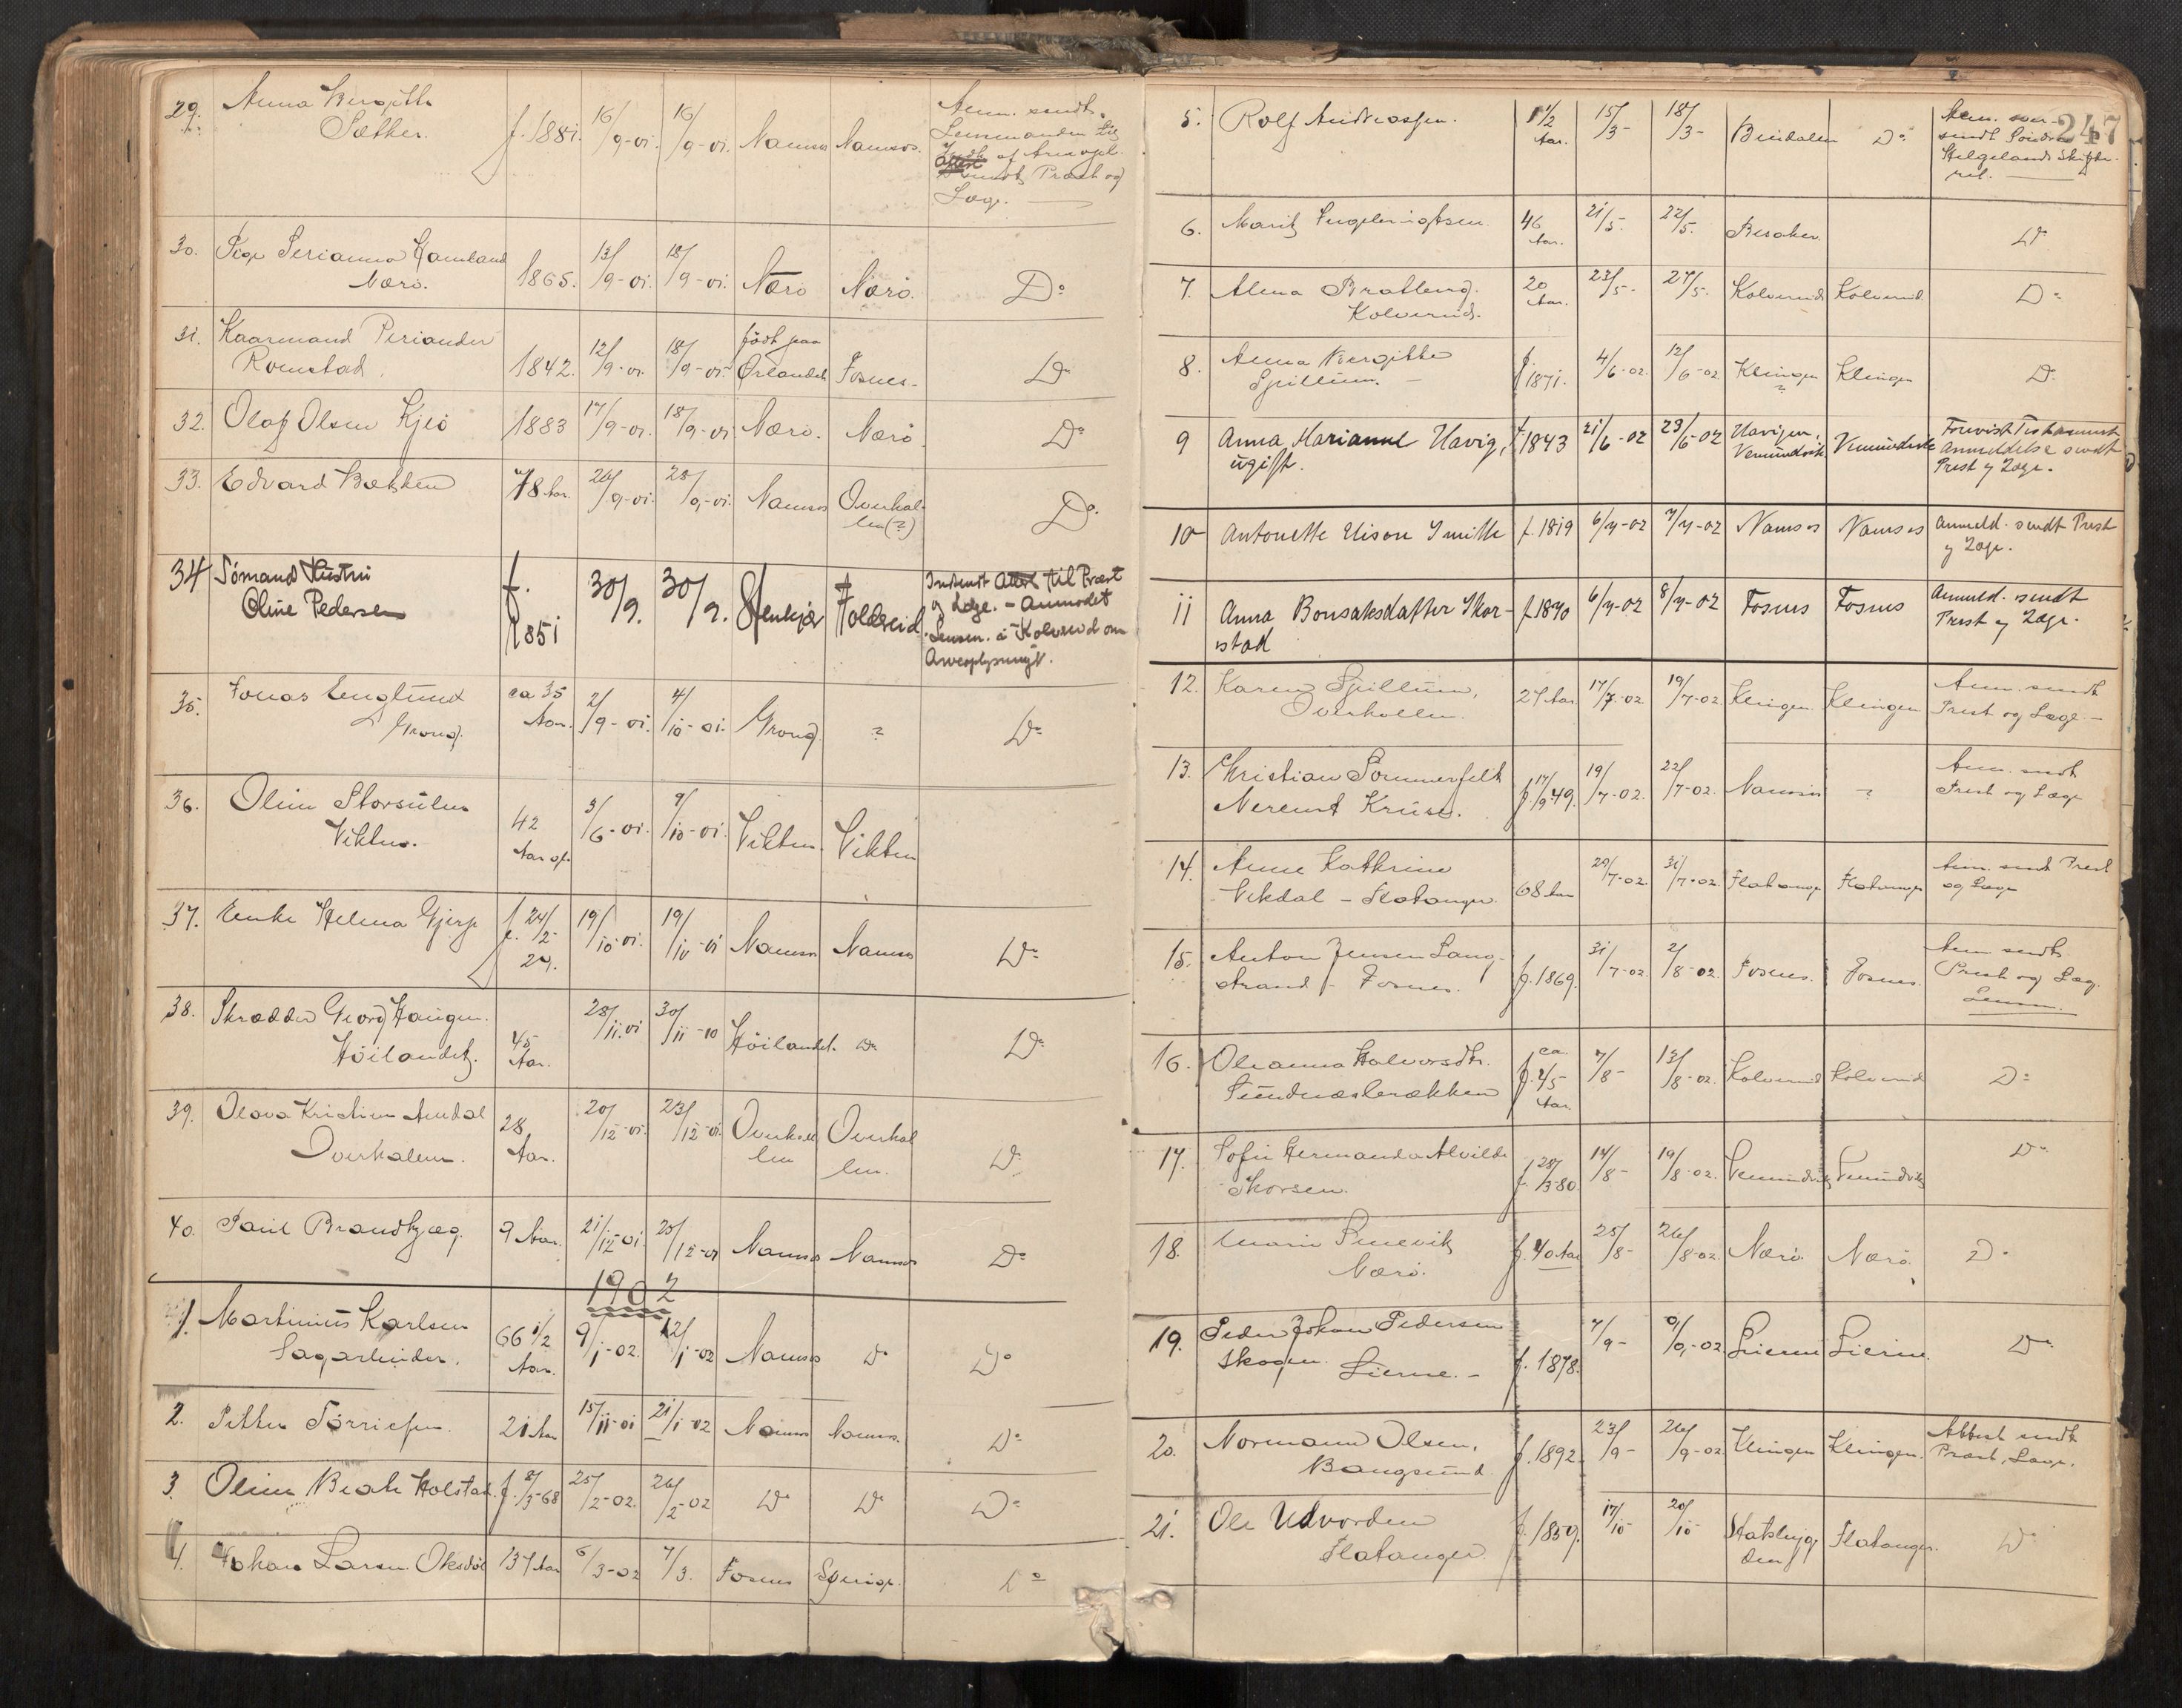 29. Anna Bergitta
Sæther. f. 1881. 16/9-01. 16/9-01. Namsos Namsos. Anm. sendt
Lensmanden
Præst og
Læge.
30. Pige Perianna Hamland
Nærö. 1865. 13/9-01. 18/9-01. Nærö Nærö. Do
31. Kaarmand Periander
Romstad. 1842. 12/9-01. 18/9-01. født paa
Ørlandet Fosnes. Do
32. Olaf Olsen Kjeö 1883 17/9-01. 18/9-01 Nærö. Nærö. Do
33. Edvard Bækken 78 Aar. 26/9-01. 28/9-01. Namsos Overhal-
len(?) Do.
34 Sömand Hustru
Oline Pedersen f. 1851 30/9. 30/9. Stenkjær Foldereid Indsendt Attest til Præst
og Læge. - Anmodet
Lensm. i Kolvereid om
Arveoplysning.
35. Jonas Englund
Grong. ca 35
Aar. 2/9-01. 4/10-01. Grong. ? Do
36. Oline Storsulen
Vikten. 42
Aar gl. 3/6-01. 9/10-01. Vikten. Vikten
37. Enke Helena Gjerp f. 24/2-
29. 19/10-01. 19/10-01 Namsos Namsos Do
38. Skrædder Georg Haugen.
Höilandet. 45
Aar. 28/11.01 30/11-10 Höilandet. Do Do
39. Olava Kristine Amdal
Overhalen. 28
Aar. 20/12-01. 23/12-01. Overhal
len Overhal
len. Do
40. Paul Brandtzæg. 9 Aar. 21/12-01. 25/12-01 Namsos Namsos Do
1902
1. Martinius Karlsen
Sagarbeider. 66 1/2
Aar. 9/1-02. 12/1-02 Namsos Do Do
2. Petter Törrissen. 21 Aar 15/11-01 21/1-02 Namsos Namsos. Do
3. Oline Beate Holstad. f. 8/3-68 25/2-02. 26/2-02 Do Do Do
4. Johan Larsen Oksdöl 137 Aar 6/3-02 7/3. Fosnes Sverige. Do
247
5. Rolf Andreassen. 1 1/2
Aar. 15/3- 18/3- Bindalen Do Anm. over-
sendt Söndre
Helgelands Skifte-
ret.
6. Marit Ingebrigtsen 46
Aar. 21/5- 22/5. Besaker. Do
7. Alma Bratberg.
Kolvereid. 20
Aar. 23/5- 27/5. Kolvereid Kolvereid. Do
8. Anna Bergitte
Spillum. - f.
1871. 4/6-02. 12/6-02 Klingen
? Klingen Do
9 Anna Marianne Havig,
ugift. f. 1843 21/6-02 23/6-02 Havigen,
Vemundvik Vemundvik Forevist Testament
Anmeldelse sendt
Prest og Læge.
10 Antonette Elison Smitth f. 1819 6/7-02 7/7-02 Namsos Namsos Anmeld. sendt Prest
og Læge.
11 Anna Bonsaksdatter Skor-
stad f. 1870 6/7-02 8/7-02 Fosnes Fosnes Anmeld. sendt
Prest og Læge.
12. Karen Spillum,
Overhallen. 27 Aar. 17/7-02. 19/7-02. Klingen. Klingen Anm. sendt
Prest og Læge -
13. Christian Sommerfelt
Nerenst Kruse. f. 17/9 49. 19/7-02. 22/7-02. Namsos ? Anm. sendt
Prest og Læge
14. Anne Kathrine
Vikdal - Flatanger. 68 Aar 29/7-02. 31/7-02. Flatanger Flatanger Anm. sendt Prest
og Læge
15. Anton Jensen Lang-
strand - Fosnes. f. 1869. 31/7-02. 2/8-02. Fosnes. Fosnes. Anm sendt
Prest og Læg.
Lensm.
16. Oleanna Halvorsdtr.
Sundnæsbrækken ca
f. 45
Aar. 7/8- 13/8-02. Kolvereid Kolvereid Do
17. Sofie Hermanda Alvilde
Skorsen. f. 28/3-80. 14/8- 19/8-02. Vemundvik Vemundvik Do
18. Marie Finnevik
Nærö. f. 40 Aar 25/8- 26/8-02. Nærö. Nærö. Do
19. Peder Johan Pedersen
Skogen. Lierne. - f. 1878. 7/9- 9/9-02 Lierne Lierne. Do
20. Normann Olsen,
Bangsund. f. 1892. 23/9- 26/9-02 Klingen Klingen. Attest sendt
Præst, Læge.
21. Ole Udvorden
Flatanger f. 1859. 17/10- 20/10- Statsbyg
den Flatanger. Do